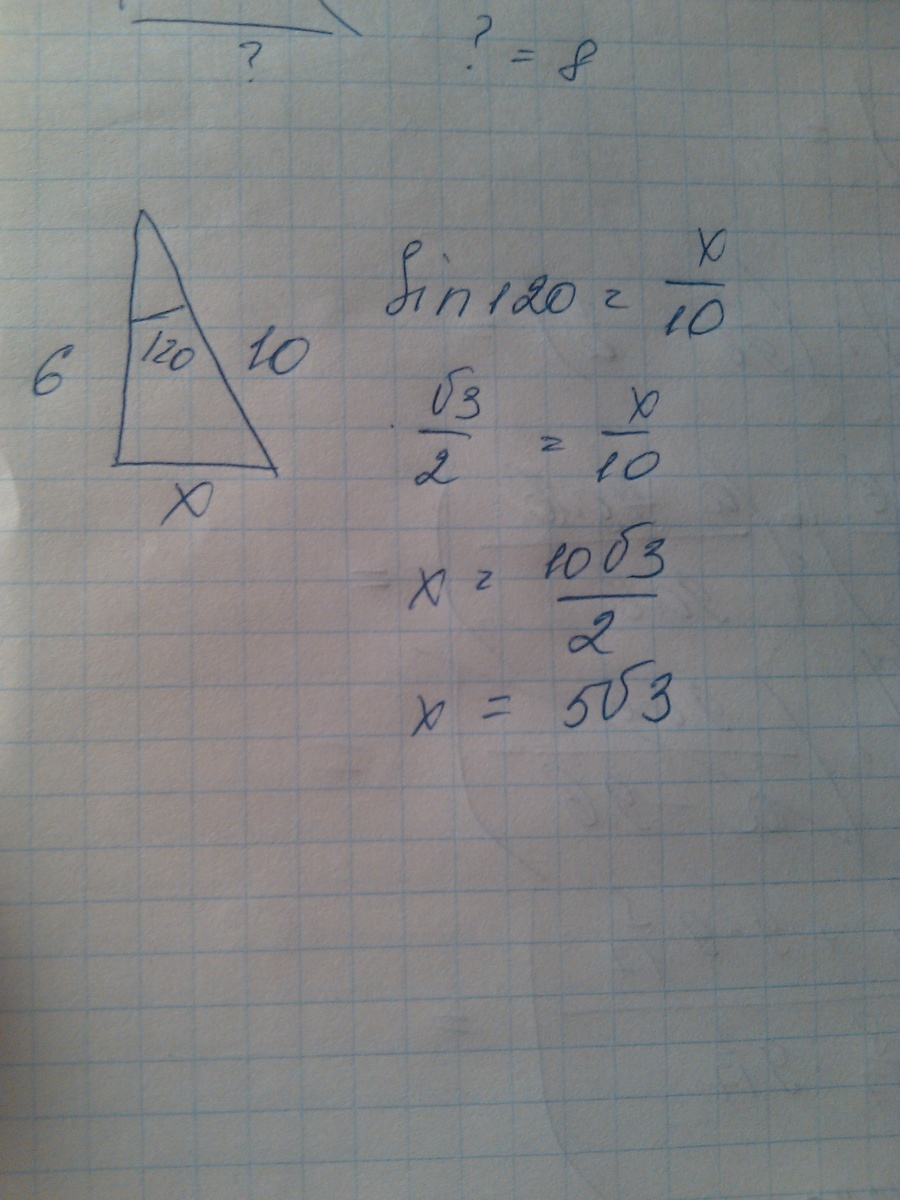 ?
? = 8
6
120
10
x
Sin 120 = x/10
√3/2 = x/10
x = 10√3/2
x = 5√3